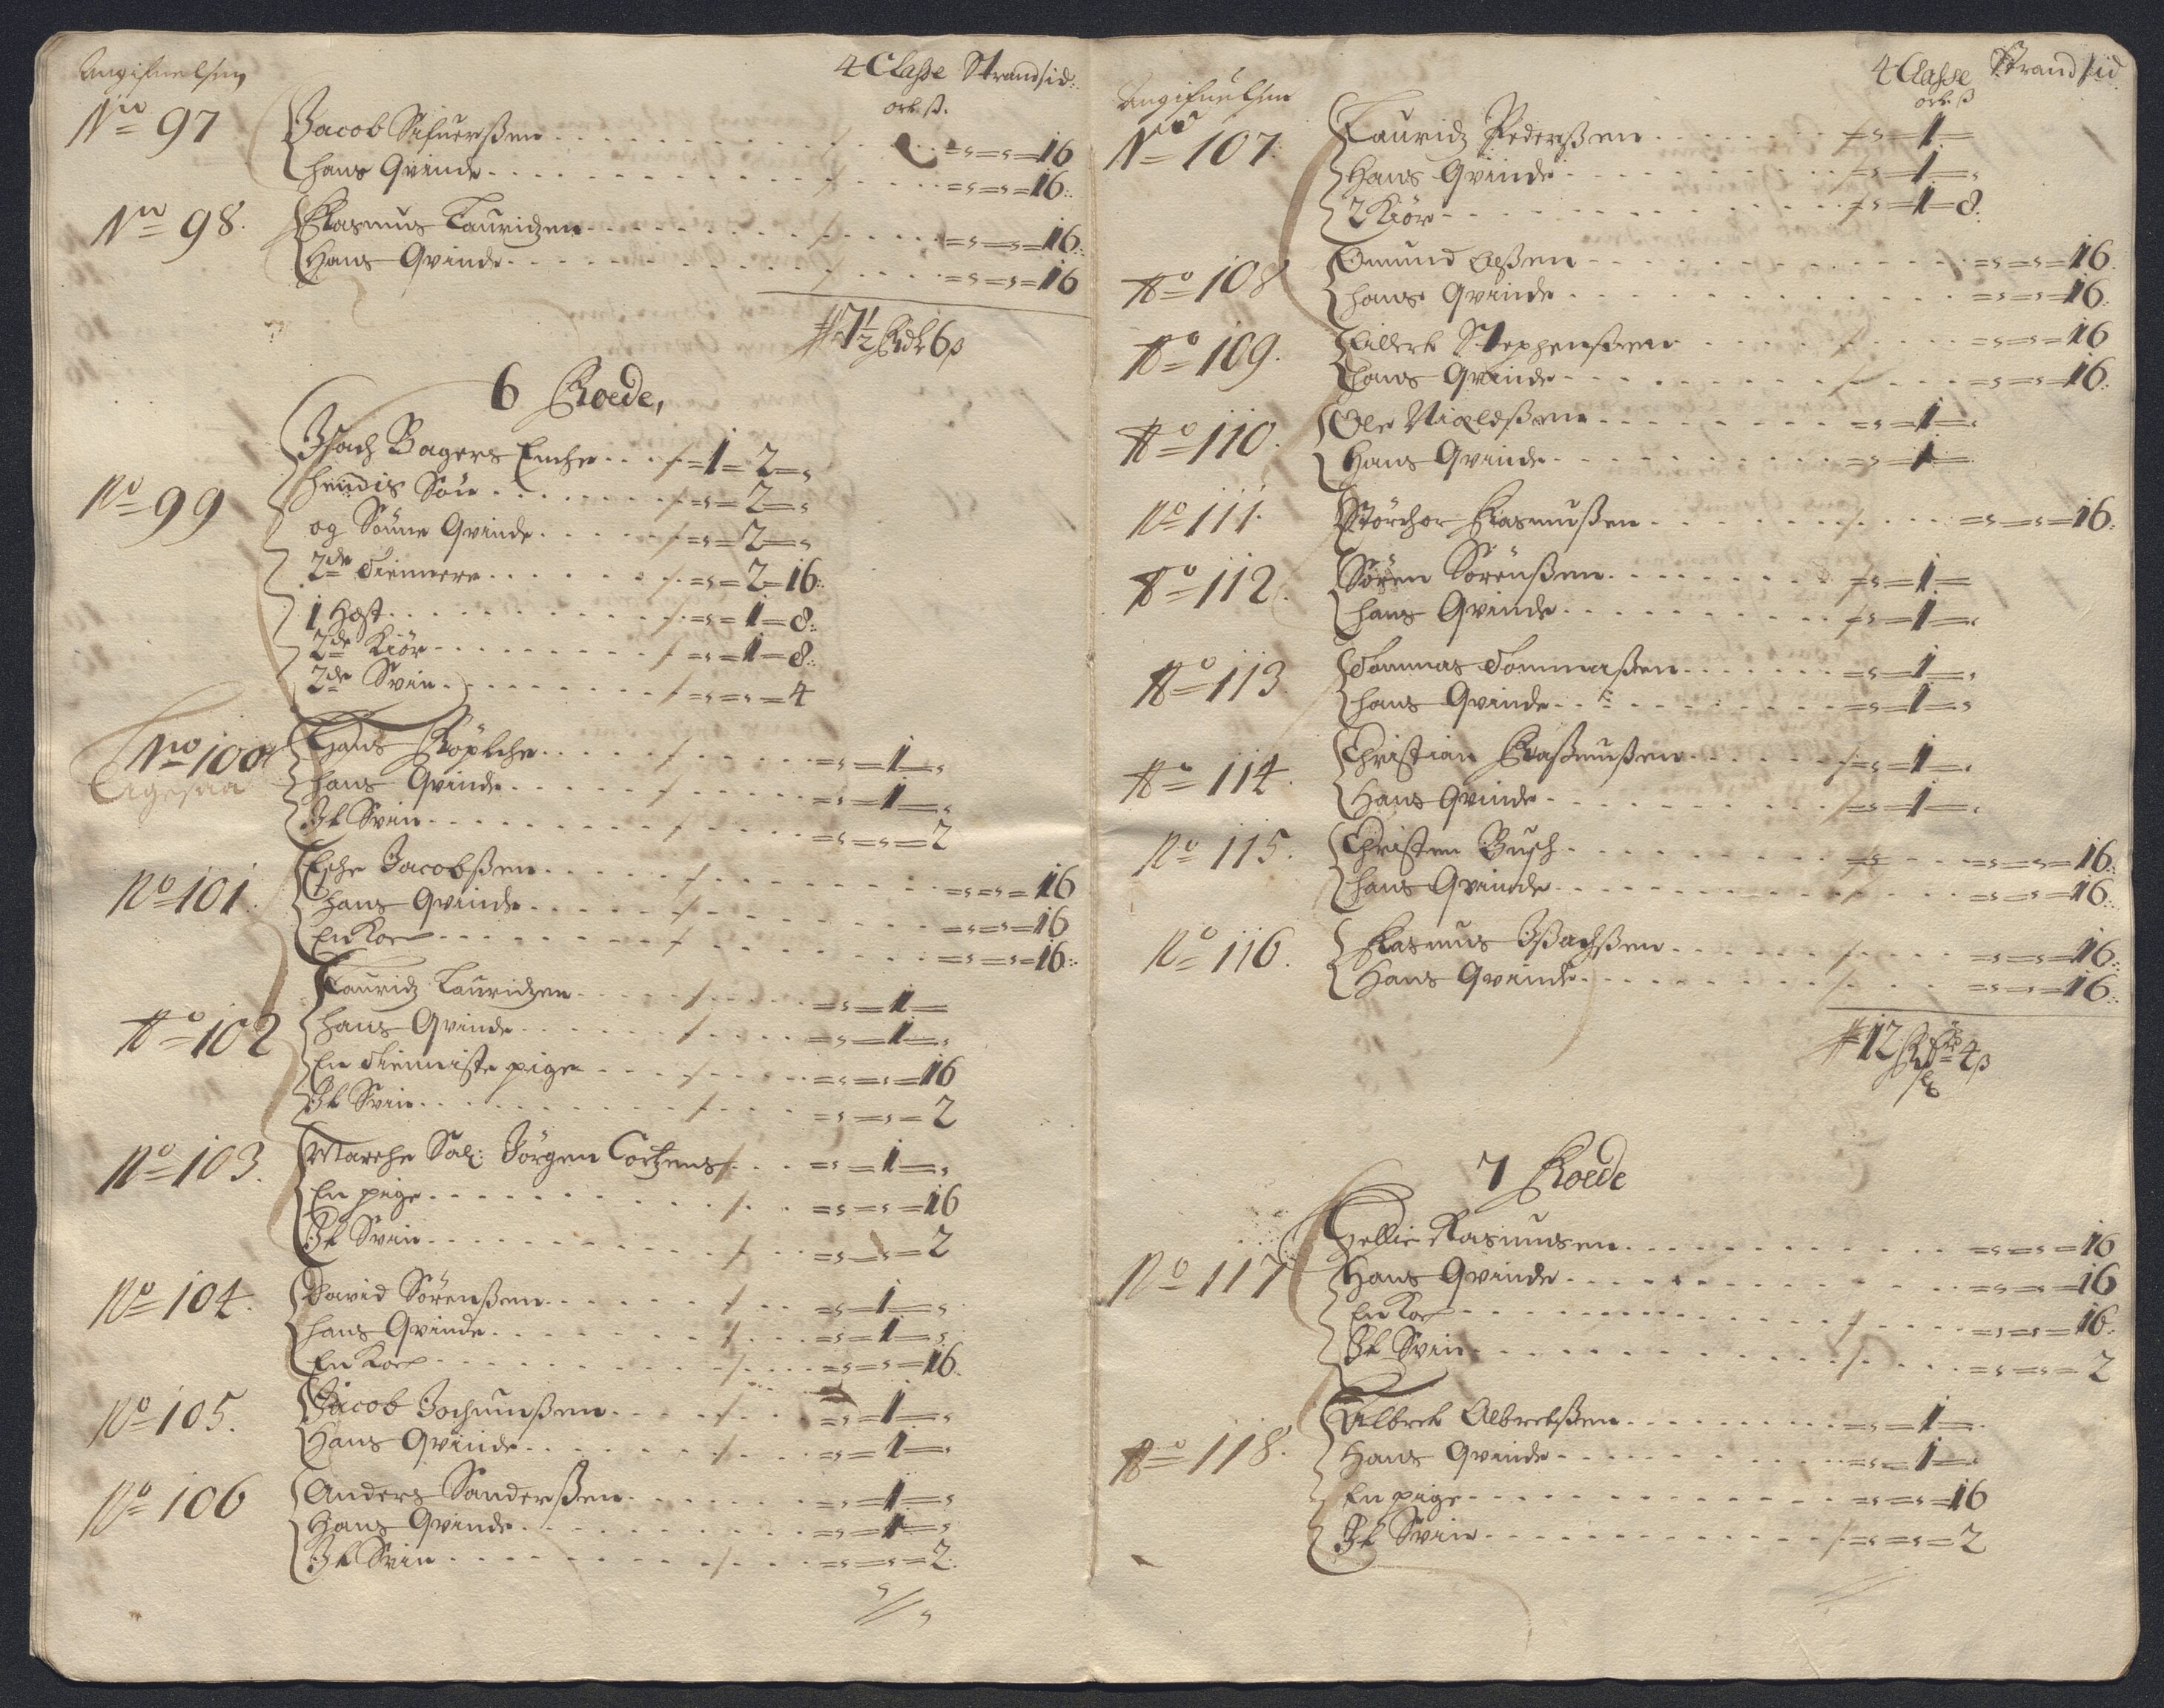 Angifuelsen
4 Classe Strandsid:
ort. ß.
No 97 Jacob Sifuerßen =s=s=16
hans Qvinde =s=s=16
No 98. Rasmus Lauridzen =s=s=16
Hans Qvinde =s=s=16
7½ Rdr 6 ß
6 Roede,
Isach Bagers Enche =1=2=s
No 99 hendis Sön =s=2=s
og Sönne Qvinde =s=2=s
2de Tiennere =s=2=16
1 Hæst =s=1=8
2de Kiör =s=1=8
2de Svin =s=s=4
No 100 Hans Köplche =s=1=s
hans Qvinde =s=1=s
Et Svin =s=s=2
Esche Jacobßen =s=s=16
No 101. hans Qvinde =s=s=16
En Koe =s=s=16
Lauridz Lauridzen =s=1=
No 102 hans Qvinde =s=1=s
En tienniste pige =s=s=16
Et Svin =s=s=2
No 103. Marche Sal: Jörgen Cortzens =s=1=s
En pige =s=s=16
Et Svin =s=s=2
No 104. David Sörenßen =s=1=s
hans Qvinde =s=1=s
En Koe =s=s=16
No 105. Jacob Jochumßen =s=1=s
Hans Qvinde =s=1=s
No 106 Anders Sanderßen =s=1=s
Hans Qvinde =s=1=s
Et Svin =s=s=2
Angifuelsen
4 Classe Strandsid
ort. ß
No 107. Lauridz Pederßen =s=1=
Hans Qvinde =s=1=s
2 Kiör =s=1=8
No 108 Omund Olßen =s=s=16
hans Qvinde =s=s=16
No 109. Eillert Stephenßen =s=s=16
hans Qvinde =s=s=16
No 110. Ole Nielßen =s=1=s
Hans Qvinde =s=1=
No 111. Störchor Rasmußen =s=s=16
No 112. Sören Sörenßen =s=1=
hans Qvinde =s=1=s
No 113. Tommas Tommaßen =s=1=s
hans Qvinde =s=1=s
No 114. Christian Raßmußen =s=1=s
Hans Qvinde =s=1=s
No 115. Christen Busch =s=s=16
hans Qvinde =s=s=16
No 116. Rasmus Ißachßen =s=s=16
Hans Qvinde =s=s=16
12 Rdr 4 ß
7 Roede
Hellie Rasmusen =s=s=16
No 117 Hans Qvinde =s=s=16
En Koe =s=s=16
Et Svin =s=s=2
Albret Albretßen =s=1=
No 118. Hans Qvinde =s=1=
En pige =s=s=16
Et Svin =s=s=2